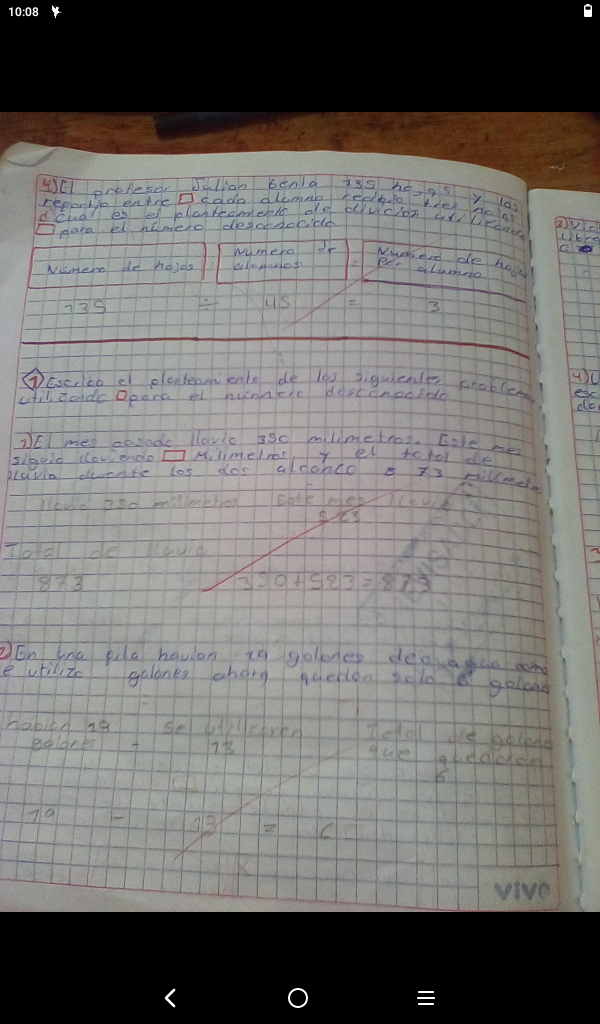 10:08
4) El profesor Julian tenia 135 hojas y las
repartio entre cada alumno recibio tres hojas
¿Cual es el planteamiento de divicion utilizando
para el número desconocido
Número de hojas
Numero de
alumnos
=
Numero de hojas
por alumno
135 ÷ 45 = 3
1) Escribo el planteamiento de los siguiente problema
utilizando para el número desconocido
1) El mes pasado llovio 350 milimetros. Este mes
siguio lloviendo Milimetros, y el total de
lluvia durante los dos alcanzo 873 milimetr
llovio 350 milimetros Este mes llovio
523
Total de lluvia
873 350+523=873
2) En una pila havian 19 galones de agua
se utilizo galones ahora quedan solo 6 galones
habian 19
galones
-
se utilizaron
13
Total de galone
que quedaron
6
19 - 13 = 6
2) Vic
Libro
4) U
esc
de
VIVO